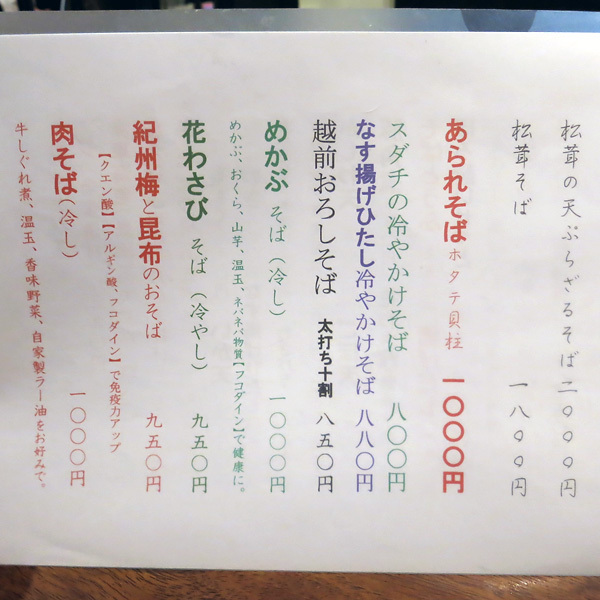 松茸の天ぷらざるそば二〇〇〇円
松茸そば 一八〇〇円
あられそば ホタテ貝柱 一〇〇〇円
スダチの冷やかけそば 八〇〇円
なす揚げひたし冷やかけそば 八八〇円
越前おろしそば 太打ち十割 八五〇円
めかぶ そば(冷し) 一〇〇〇円
めかぶ、おくら、山芋、温玉、ネバネバ物質【フコダイン】で健康に。
花わさび そば(冷やし) 九五〇円
紀州梅と昆布のおそば 九五〇円
【クエン酸】【アルギン酸、フコダイン】で免疫力アップ
肉そば(冷し) 一〇〇〇円
牛しぐれ煮、温玉、香味野菜、自家製ラー油をお好みで。